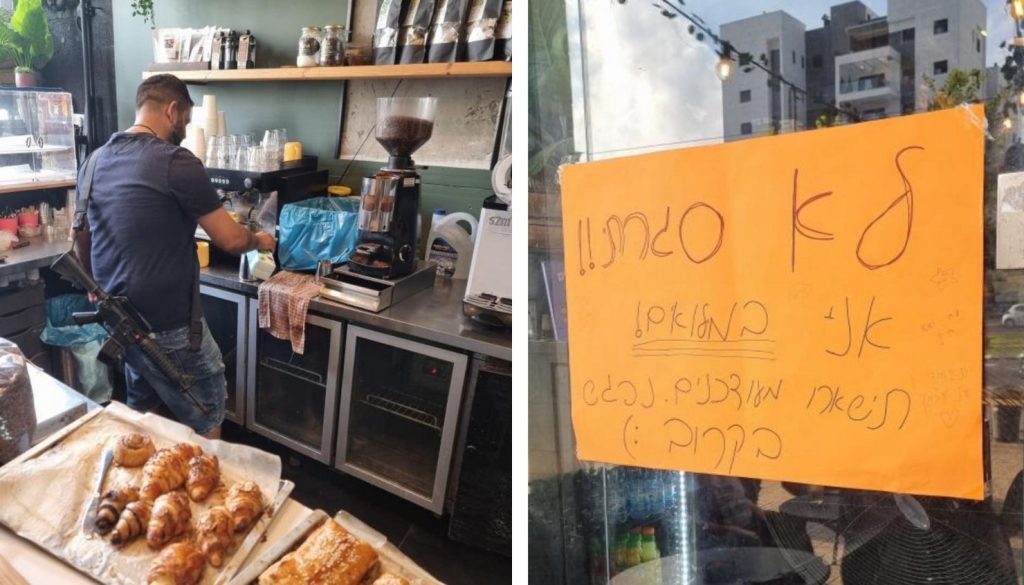 לא סגרתי!!
אני במלואים!
תישארו מעודכנים. נפגש
בקרוב :)